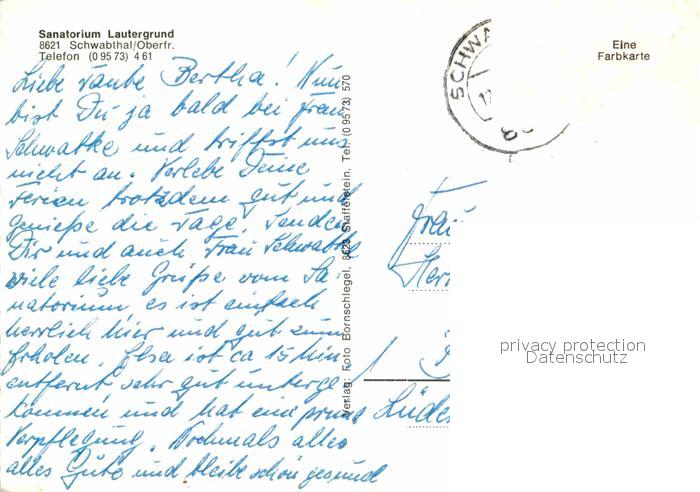 Sanatorium Lautergrund
8621 Schwabthal/Oberfr.
Telefon (0 95 73) 4 61
Eine
Farbkarte
SCHWA
Liebe Tante Bertha! Nun
bist Du ja bald bei Frau
Schwatke und triffst uns
nicht an. Verlebe Deine
Ferien trotzdem gut und
genieße die Tage. Senden
Dir und auch Frau Schwatke
viele liebe Grüße vom Sa-
natorium, es ist einfach
herrlich hier und gut zum
Erholen. Elsa ist ca 15 Min
entfernt sehr gut unterge-
kommen und hat eine prima
Verpflegung. Nochmals alles
alles Gute und bleibe schön gesund
Verlag: Foto Bornschlegel, 8623 Staffelstein, Tel. (0 95 73) 570
Frau
Her
Lüde
privacy protection
Datenschutz